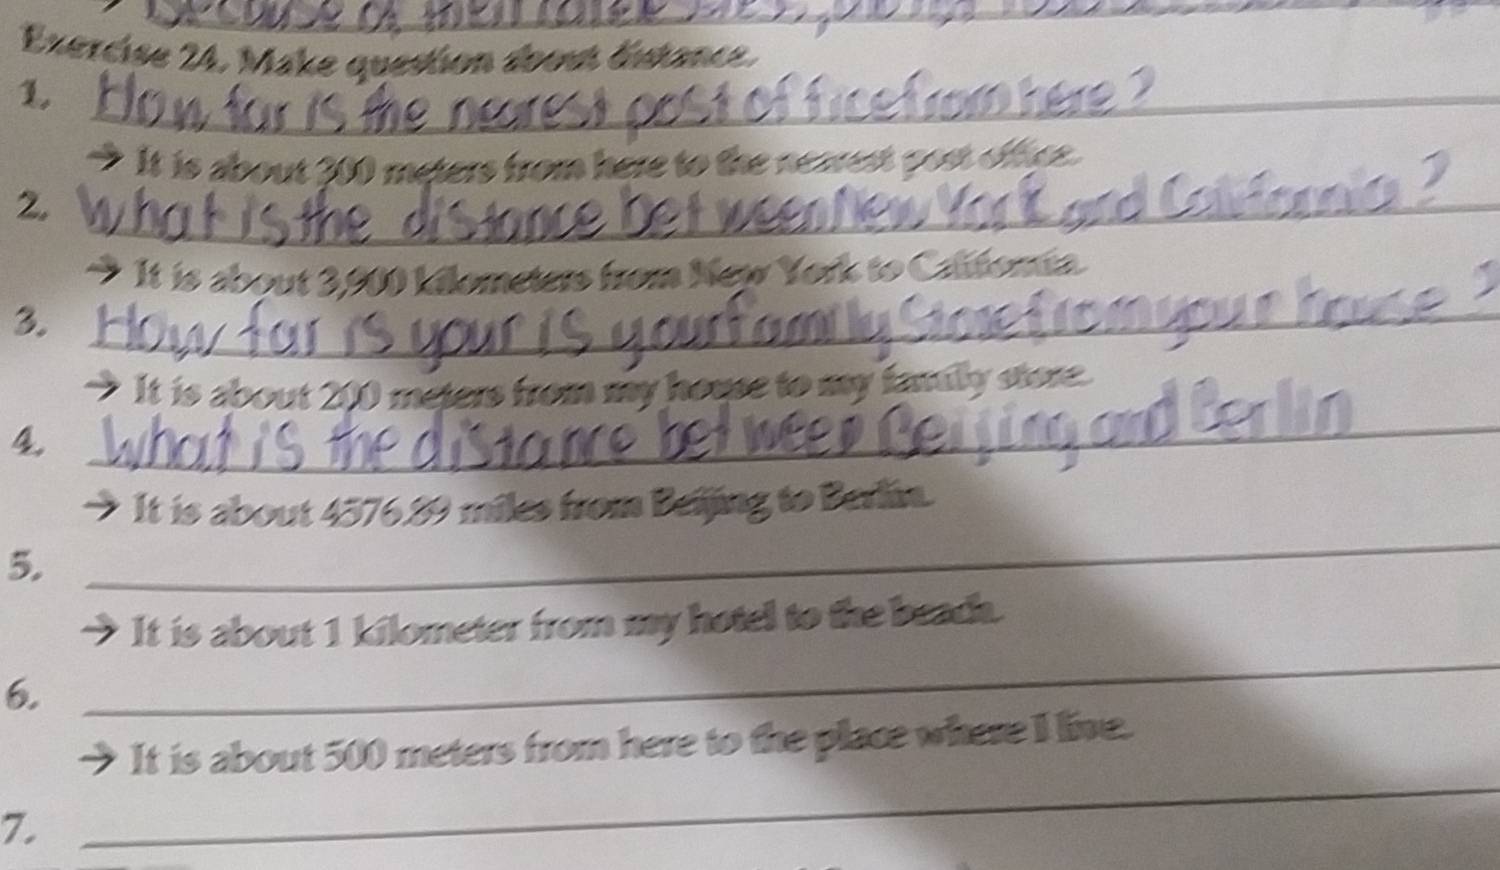 Because of their
Exercise 24. Make question about distance.
1. How far is the nearest post office from here?
→ It is about 300 meters from here to the nearest post office.
2. What is the distance between New York and California?
→ It is about 3,900 kilometers from New York to California.
3. How far is your is your family store from your house?
→ It is about 200 meters from my house to my family store.
4. What is the distance between Beijing and Berlin
→ It is about 4576.89 miles from Beijing to Berlin.
5.
→ It is about 1 kilometer from my hotel to the beach.
6.
→ It is about 500 meters from here to the place where I live.
7.